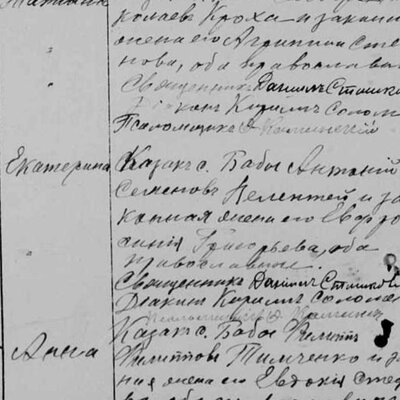 колаевъ Кроха и закон
жена его Агрипина Сте
нова, оба православн
Священникъ Даніилъ Сташко
Діаконъ Кирилъ Солом
Псаломщикъ
Екатерина Казакъ с. Бабы Антоній
Семеновъ Келентей и за
конная жена его Евфро
синія Григорьева, оба
православные.
Священникъ Даніилъ Сташков
Діаконъ Кирилъ Солома
Казакъ с. Бабы
Анна Филипповъ Тимченко и за
ная жена его Евдокія Сте